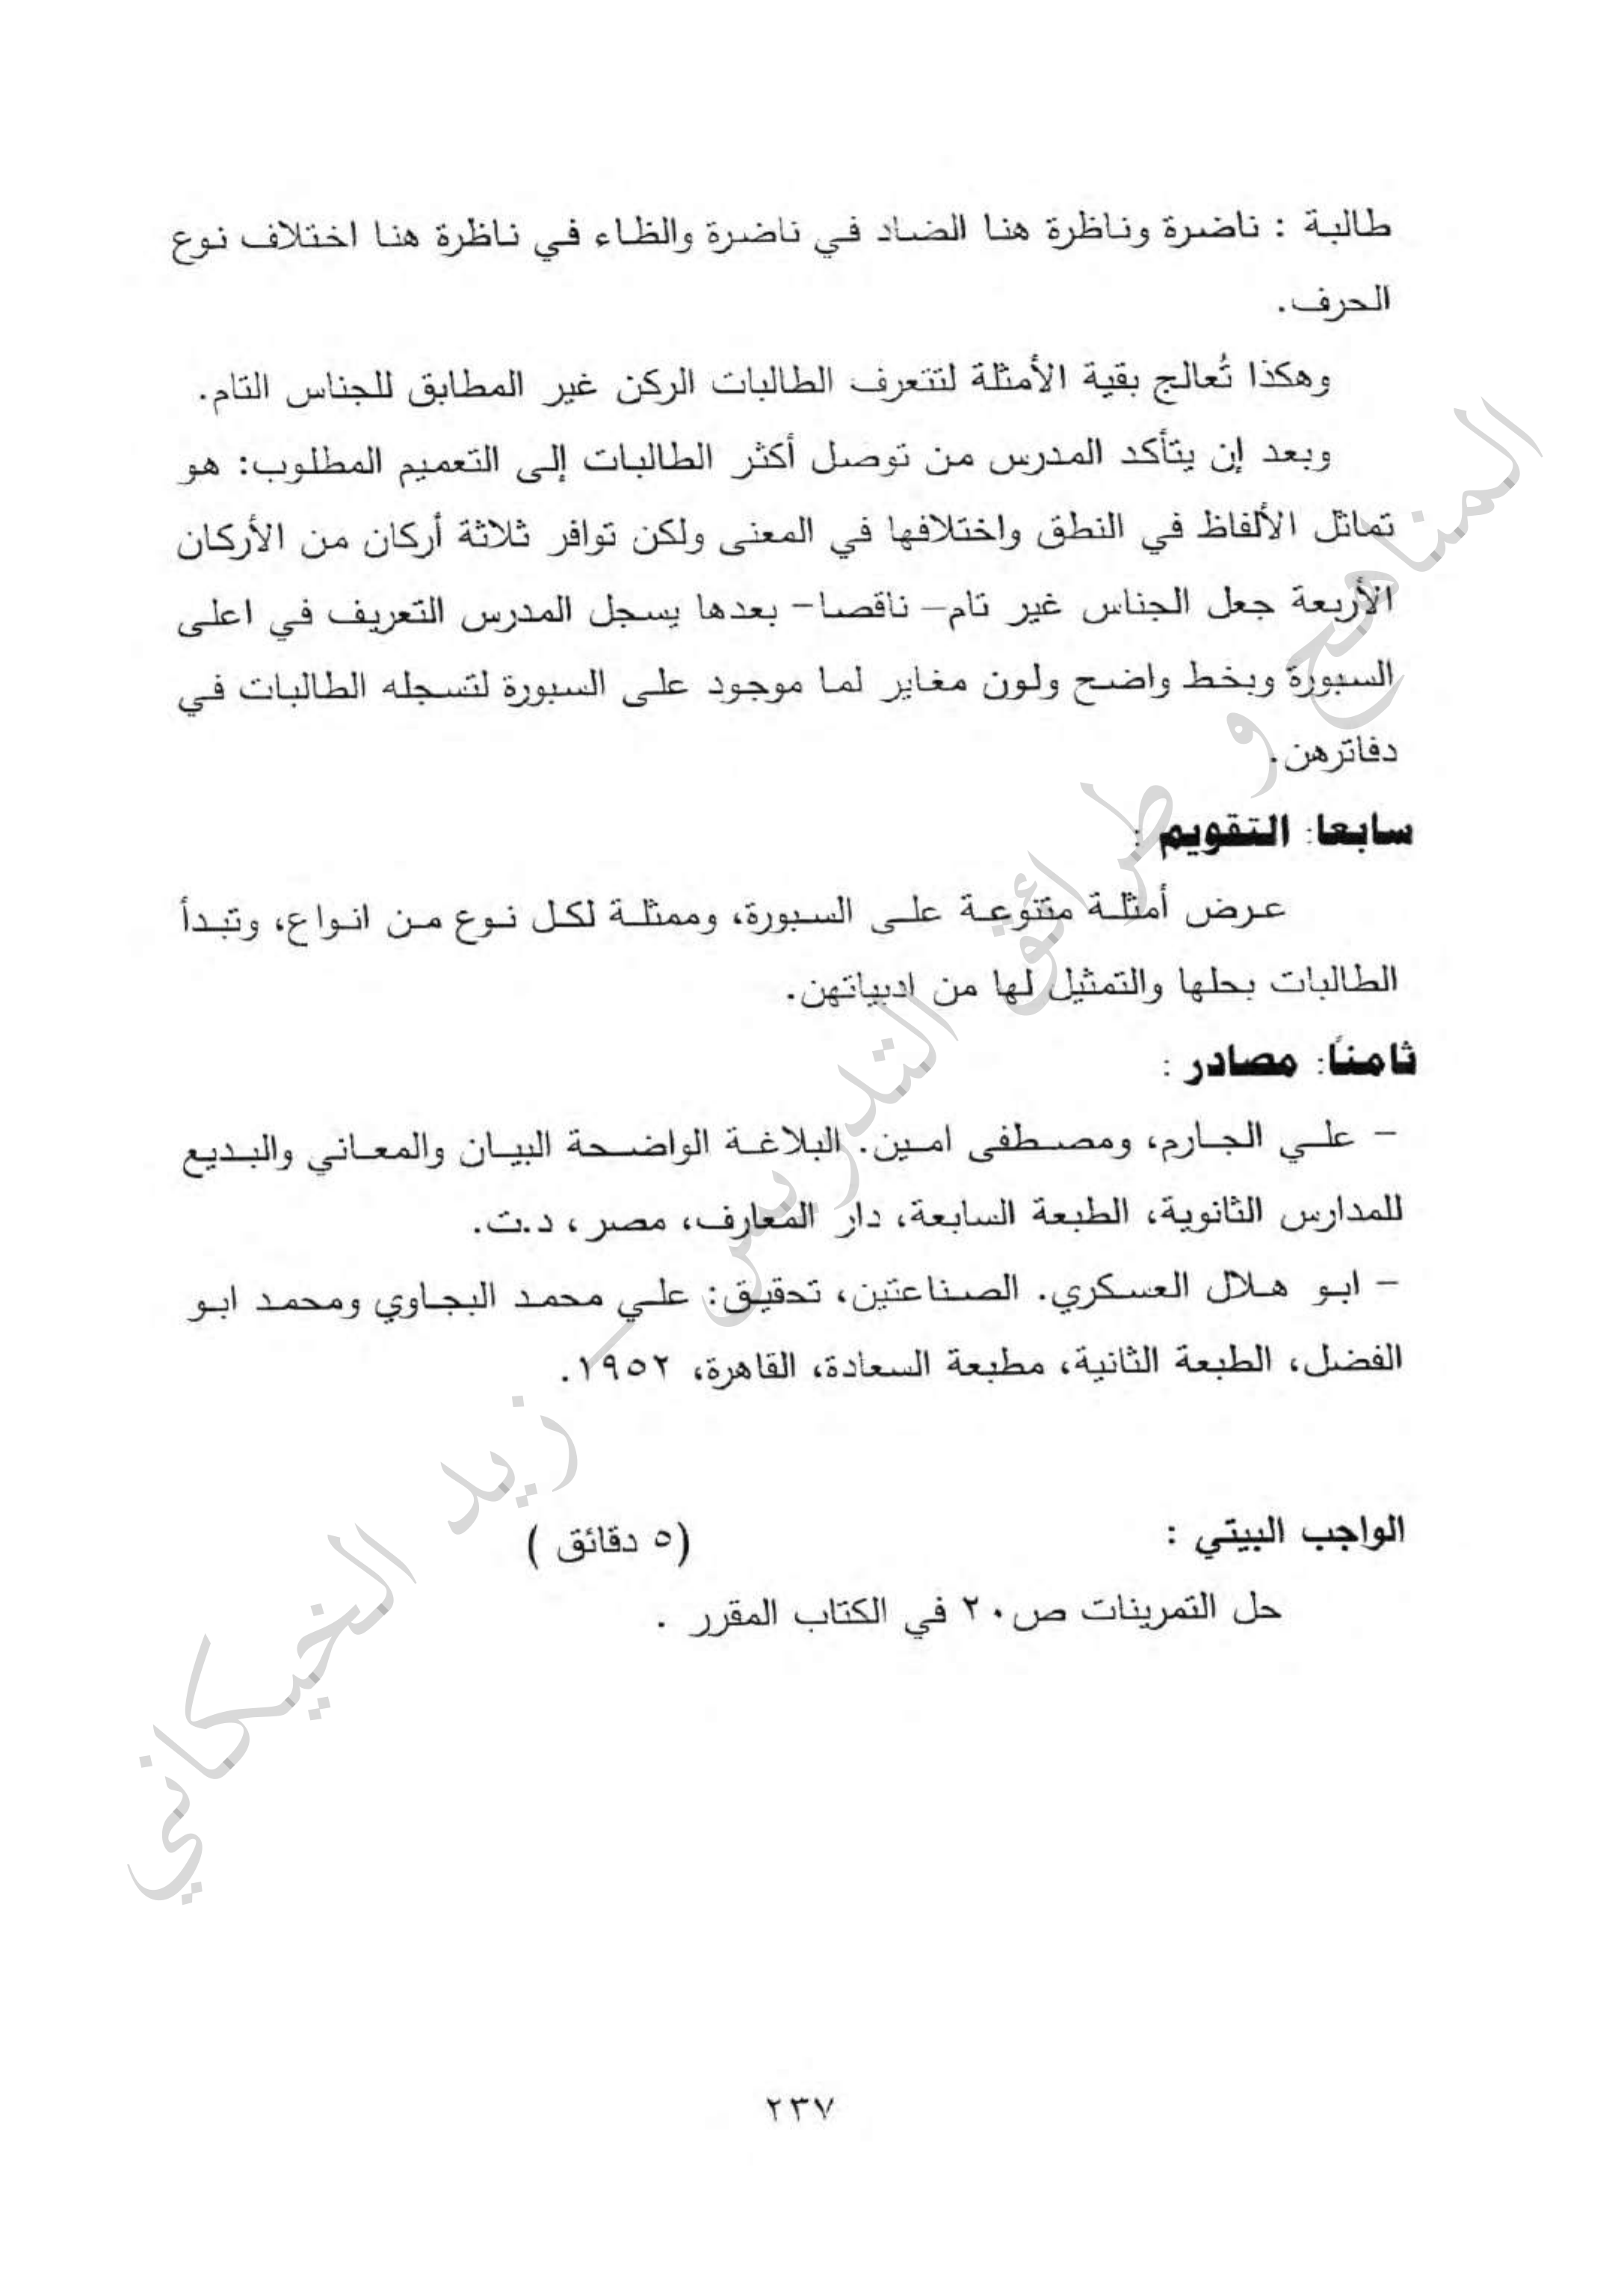 طالبة : ناضرة وناظرة هنا الضاد في ناضرة والظاء في ناظرة هنا اختلاف نوع
الحرف.
وهكذا تُعالج بقية الأمثلة لتتعرف الطالبات الركن غير المطابق للجناس التام.
وبعد إن يتأكد المدرس من توصل أكثر الطالبات إلى التعميم المطلوب: هو
تماثل الألفاظ في النطق واختلافها في المعنى ولكن توافر ثلاثة أركان من الأركان
الأربعة جعل الجناس غير تام– ناقصا– بعدها يسجل المدرس التعريف في اعلى
السبورة وبخط واضح ولون مغاير لما موجود على السبورة لتسجله الطالبات في
دفاترهن.
سابعا: التقويم :
عرض أمثلة متنوعة على السبورة، وممثلة لكل نوع من انواع، وتبدأ
الطالبات بحلها والتمثيل لها من ادبياتهن.
ثامناً: مصادر :
– علي الجارم، ومصطفى امين. البلاغة الواضحة البيان والمعاني والبديع
للمدارس الثانوية، الطبعة السابعة، دار المعارف، مصر، د.ت.
– ابو هلال العسكري. الصناعتين، تحقيق: علي محمد البجاوي ومحمد ابو
الفضل، الطبعة الثانية، مطبعة السعادة، القاهرة، ١٩٥٢.
الواجب البيتي : (٥ دقائق )
حل التمرينات ص٢٠ في الكتاب المقرر .
٢٣٧
المناهج و طرائق التدريس – زيد الخيكاني